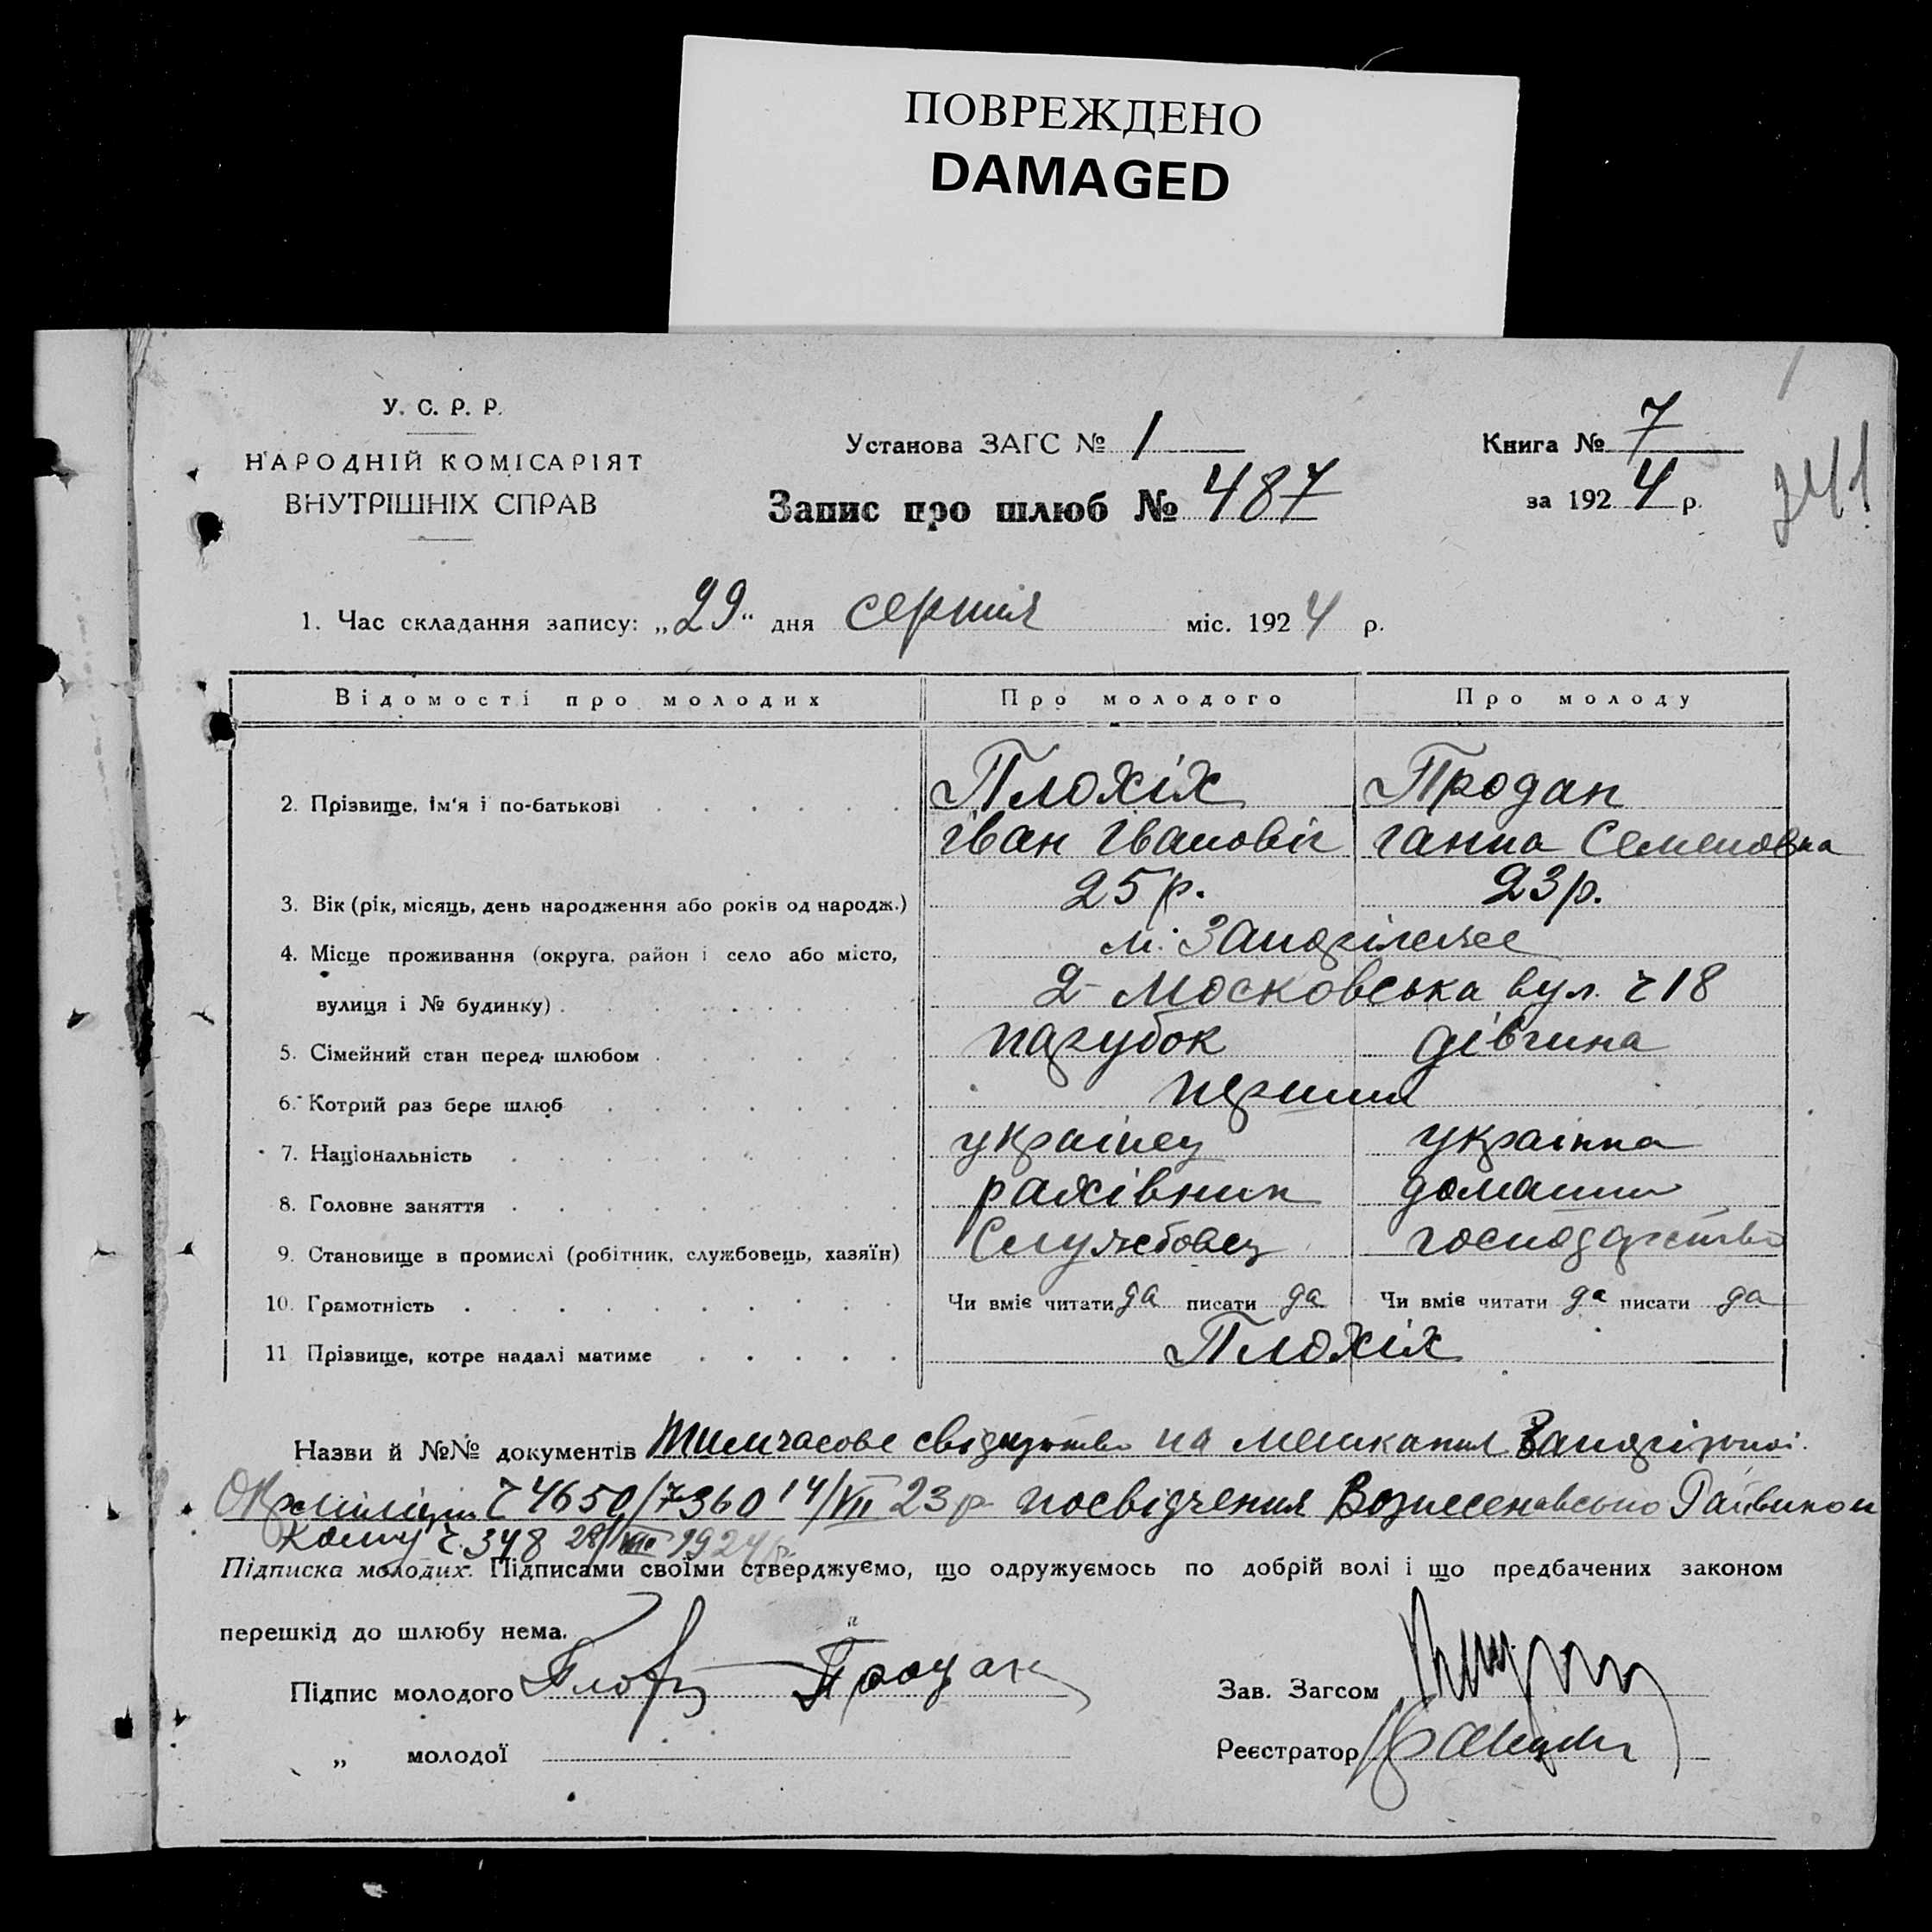 ПОВРЕЖДЕНО
DAMAGED
У. С. Р. Р.
НАРОДНІЙ КОМІСАРІЯТ
ВНУТРІШНІХ СПРАВ
Установа ЗАГС № 1
Запис про шлюб № 487
Книга № 7
за 1924 р.
241
1. Час складання запису: „29" дня серпня міс. 1924 р.
Відомості про молодих Про молодого Про молоду
2. Прізвище, ім'я і по-батькові Плохіх Продан
іван івановіч ганна Семеновна
3. Вік (рік, місяць, день народження або років од народж.) 25 р. 23 р.
4. Місце проживання (округа, район і село або місто, м. Запоріжжє
вулиця і № будинку) 2 Московська вул. ч 18
5. Сімейний стан перед шлюбом парубок дівчина
6. Котрий раз бере шлюб перший
7. Національність українец українка
8. Головне заняття рахівник домашнє
9. Становище в промислі (робітник, службовець, хазяїн) Службовец господарство
10. Грамотність Чи вміє читати да писати да Чи вміє читати да писати да
11 Прізвище, котре надалі матиме Плохіх
Назви й №№ документів Тимчасове свідоцтво на мешкання Запорізької
Окрміліции ч 4650/7360 14/VII 23 р посвідчення Вознесенавського Райвикон
кому ч. 348 28/VIII 1924 р.
Підписка молодих. Підписами своїми стверджуємо, що одружуємось по добрій волі і що предбачених законом
перешкід до шлюбу нема.
Підпис молодого Продан
Зав. Загсом
„ молодої
Реєстратор